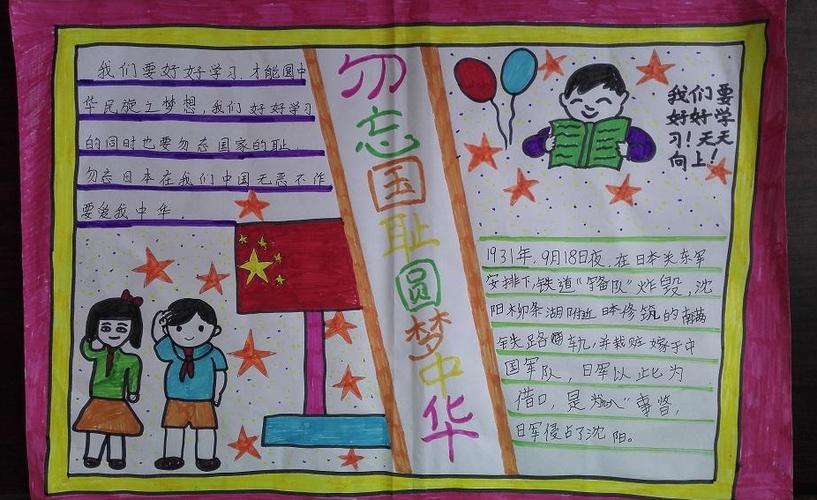 我们要好好学习.才能圆中
华民族之梦想,我们好好学习
的同时也要勿忘国家的耻.
勿忘日本在我们中国无恶不作
要爱我中华.
勿忘国耻圆梦中华
我们要
好好学
习!天天
向上!
1931年,9月18日夜,在日本关东军
安排下,铁道"守备队"炸毁,沈
阳柳条湖附近日本修筑的南满
铁路轨,并栽赃嫁于中
国军队,日军以此为
借口,是"事变,
日军侵占了沈阳。